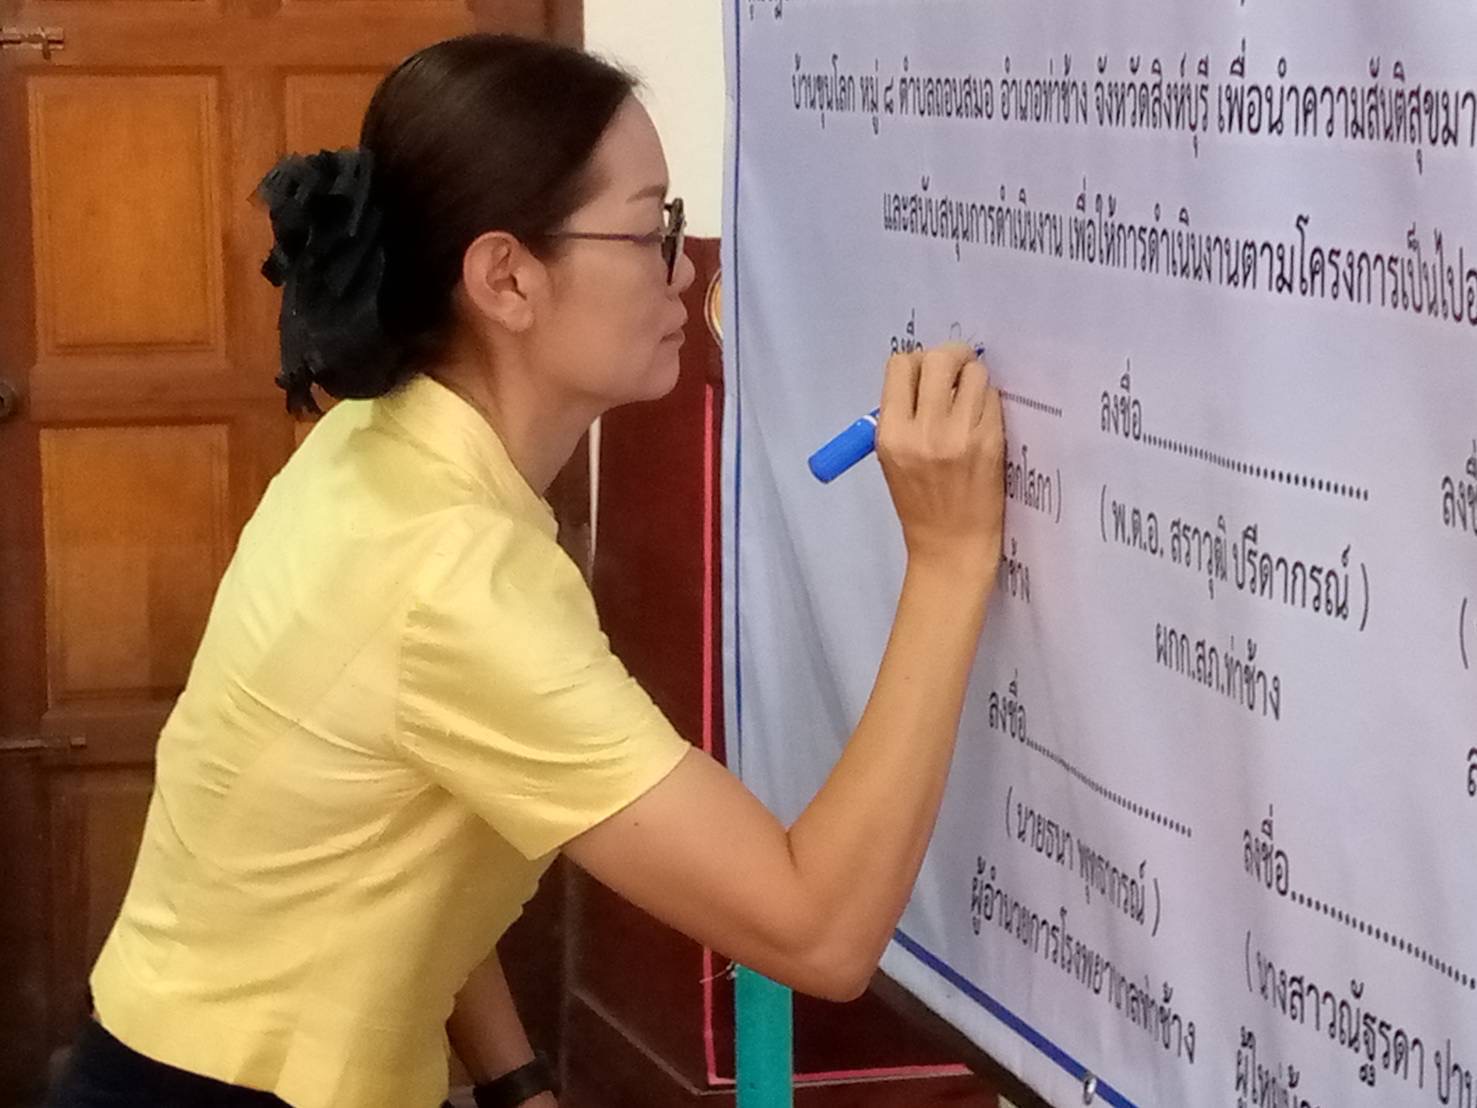 บ้านขุนโลก หมู่ ๘ ตำบลถอนสมอ อำเภอท่าช้าง จังหวัดสิงห์บุรี เพื่อนำความสันติสุขมา
และสนับสนุนการดำเนินงาน เพื่อให้การดำเนินงานตามโครงการเป็นไปอ
ลงชื่อ.............. ลงชื่อ.............................. ลงชื่
อกโสภา ) ( พ.ต.อ. สราวุฒิ ปรีดากรณ์ ) (
าช้าง ผกก.สภ.ท่าช้าง
ลงชื่อ.............................. ลงชื่อ..............................
( นายธนา พุทธากรณ์ ) ( นางสาวณัฐรดา ปาน
ผู้อำนวยการโรงพยาบาลท่าช้าง ผู้ใหญ่บ้าน